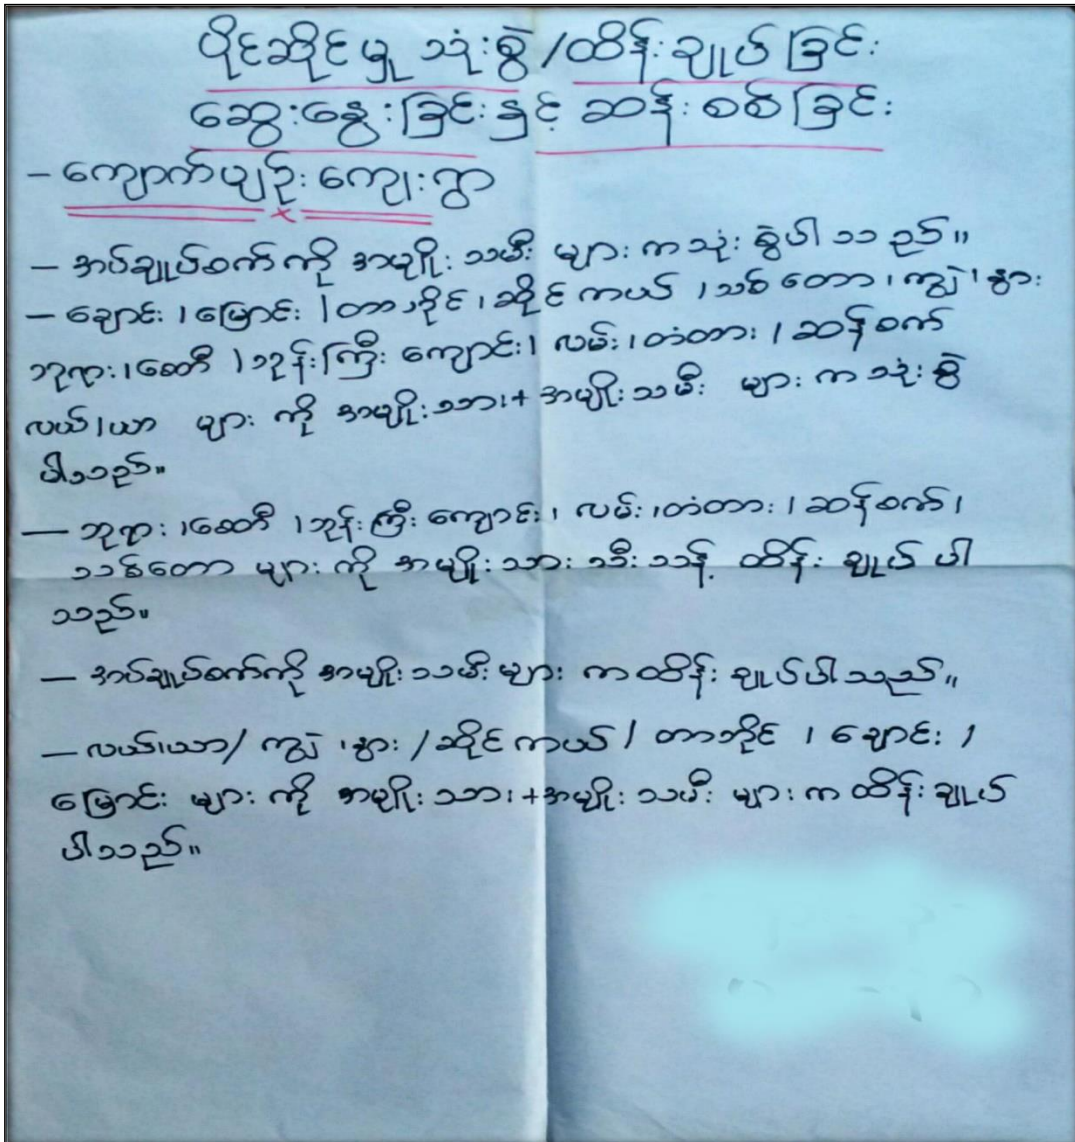 ပိုင်ဆိုင်မှု သုံးစွဲ/ထိန်းချုပ်ခြင်း
ဆွေးနွေးခြင်းနှင့် ဆန်းစစ်ခြင်း
- ကျောက်ပျဉ်းကျေးရွာ
- အပ်ချုပ်စက်ကို အမျိုးသမီးများကသုံးစွဲပါသည်။
- ချောင်း၊မြောင်း၊တာဘိုင်၊ဆိုင်ကယ်၊သစ်တော၊ကျွဲ၊နွား
ဘုရား၊စေတီ၊ဘုန်းကြီးကျောင်း၊လမ်း၊တံတား၊ဆန်စက်
လယ်၊ယာ များကို အမျိုးသား+အမျိုးသမီး များကသုံးစွဲ
ပါသည်။
- ဘုရား၊စေတီ၊ဘုန်းကြီးကျောင်း၊လမ်း၊တံတား၊ဆန်စက်၊
သစ်တောများကို အမျိုးသားသီးသန့် ထိန်းချုပ်ပါ
သည်။
- အပ်ချုပ်စက်ကို အမျိုးသမီးများကထိန်းချုပ်ပါသည်။
- လယ်၊ယာ/ကျွဲ၊နွား/ဆိုင်ကယ်/တာဘိုင်၊ချောင်း၊
မြောင်းများကို အမျိုးသား+အမျိုးသမီးများကထိန်းချုပ်
ပါသည်။